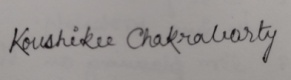 Koushikee Chakrabarty